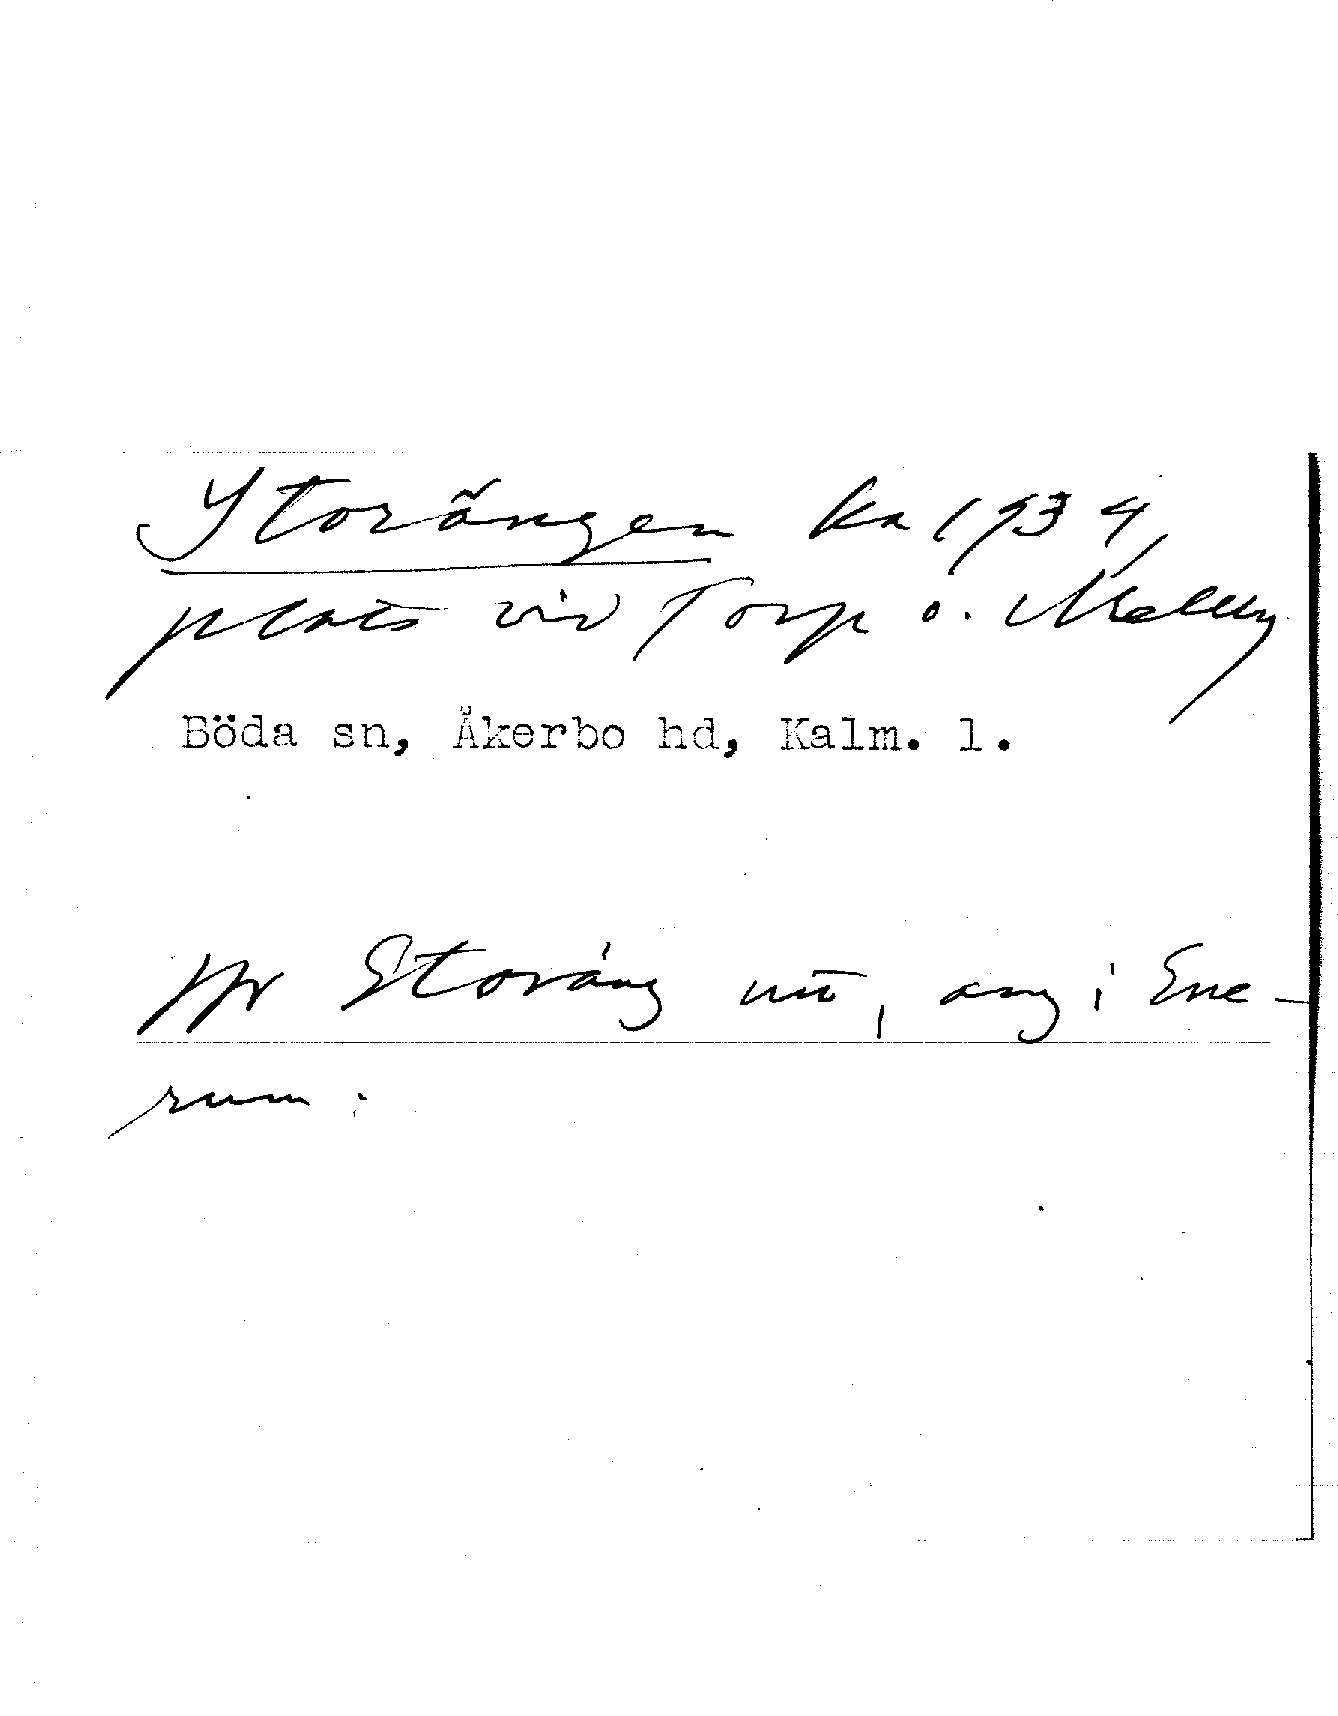 Storängen ka 1934,
plats vid Torp o. Mellby
Böda sn, Åkerbo hd, Kalm. l.
Hr Storäng nū, ang i Ene-
rum.